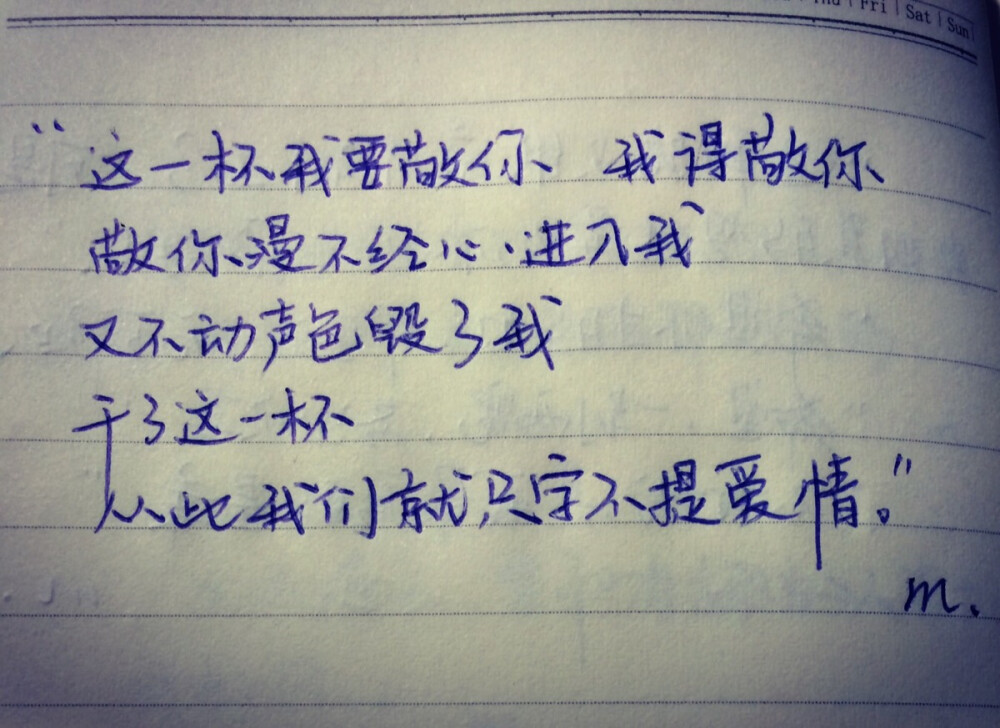 Thu | Fri | Sat | Sun
“这一杯我要敬你 我得敬你
敬你漫不经心进入我
又不动声色毁了我
干了这一杯
从此我们就只字不提爱情。”
m.